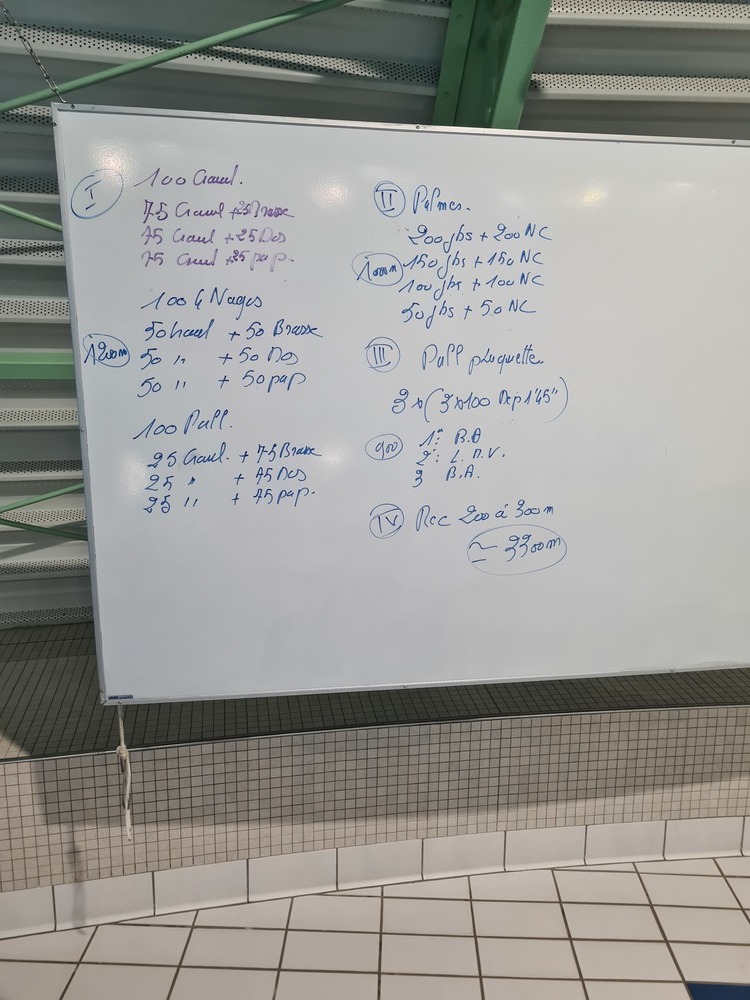 I
100 Crawl.
75 Crawl + 25 Brasse
75 Crawl + 25 Dos
75 Crawl + 25 pap.
100 4 Nages
1200m
50 Crawl + 50 Brasse
50 " + 50 Dos
50 " + 50 pap
100 Pull.
25 Crawl. + 75 Brasse
25 " + 75 Dos
25 " + 75 pap.
II Palmes.
200 jbs + 200 NC
1000m
150 jbs + 150 NC
100 jbs + 100 NC
50 jbs + 50 NC
III Pull plaquette
3 x (3x100 Dep 1'45")
900
1°: B.A
2°: L.M.V.
3 B.A.
IV Rec 200 à 300m
≃ 3300m